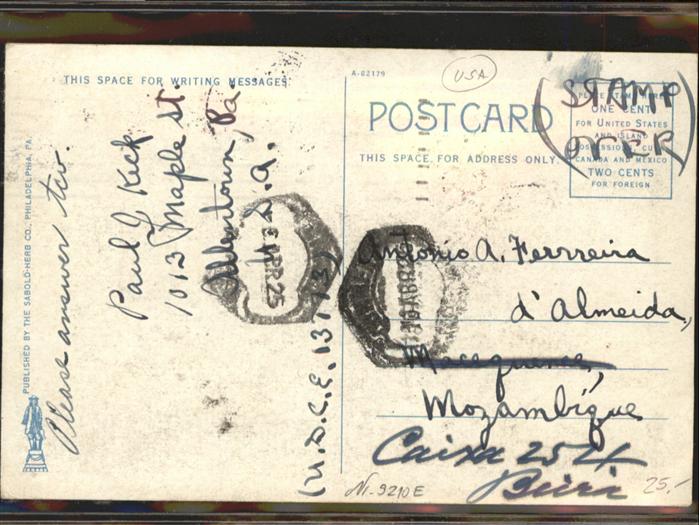 THIS SPACE FOR WRITING MESSAGES.
A-82179
USA
POSTCARD
THIS SPACE FOR ADDRESS ONLY.
PLACE STAMP HERE
ONE CENT
FOR UNITED STATES
AND ISLAND
POSSESSIONS, CUBA
CANADA AND MEXICO
TWO CENTS
FOR FOREIGN
(STAMP
OVER)
PUBLISHED BY THE SABOLD-HERB CO., PHILADELPHIA, PA.
Please answer two.
Paul J Kick
1013 Maple St.
Allentown, Pa
U.S.A.
(U.D.C.E. 13173)
ABR 25
Antonio A. Ferrreira
d'Almeida,
Mozambique
Caixa 254
Beira
Nr-9210E
25.-